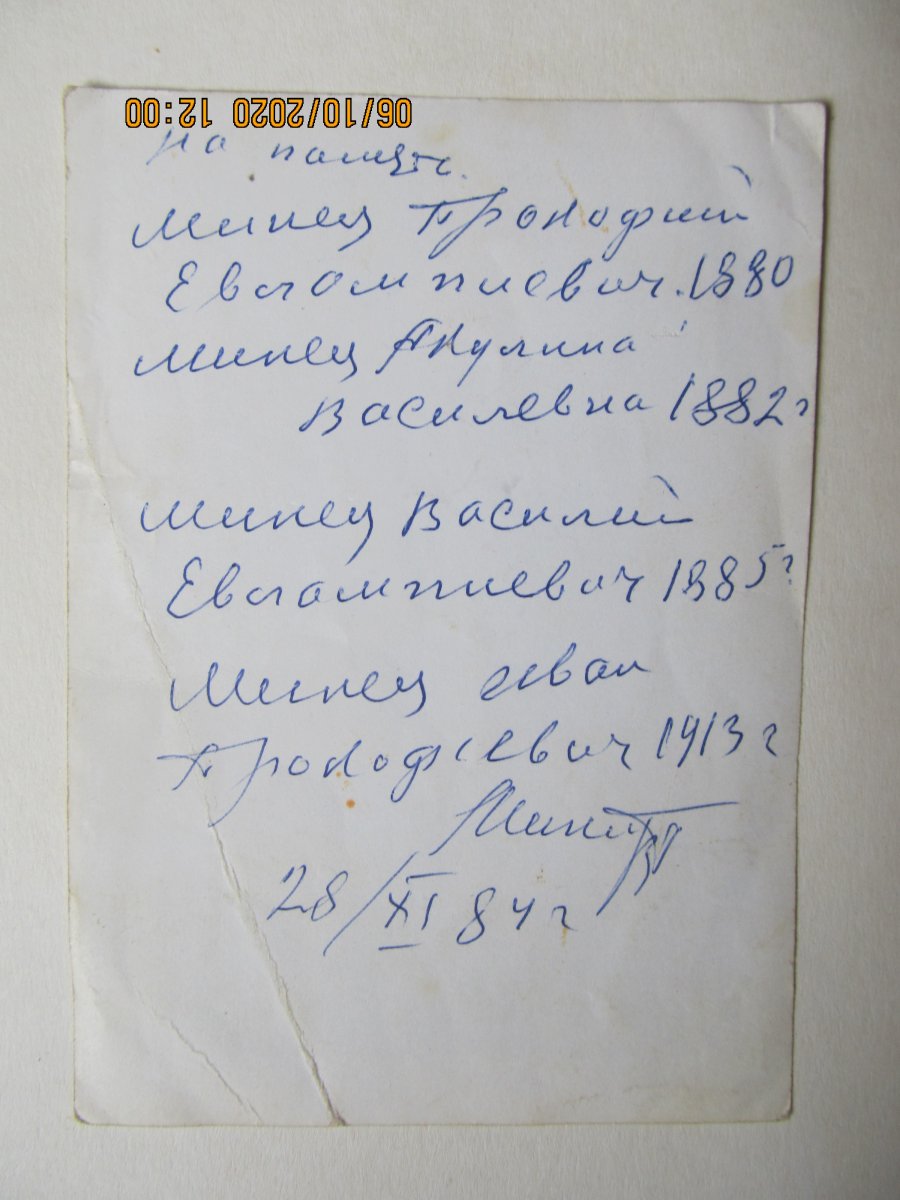 06/10/2020 12:00
На память.
Минец Прокофий
Евлампиевич. 1880
Минец Акулина
Василевна 1882 г
Минец Василий
Евлампиевич 1885 г.
Минец иван
Прокофиевич 1913 г
28/XI 84 г